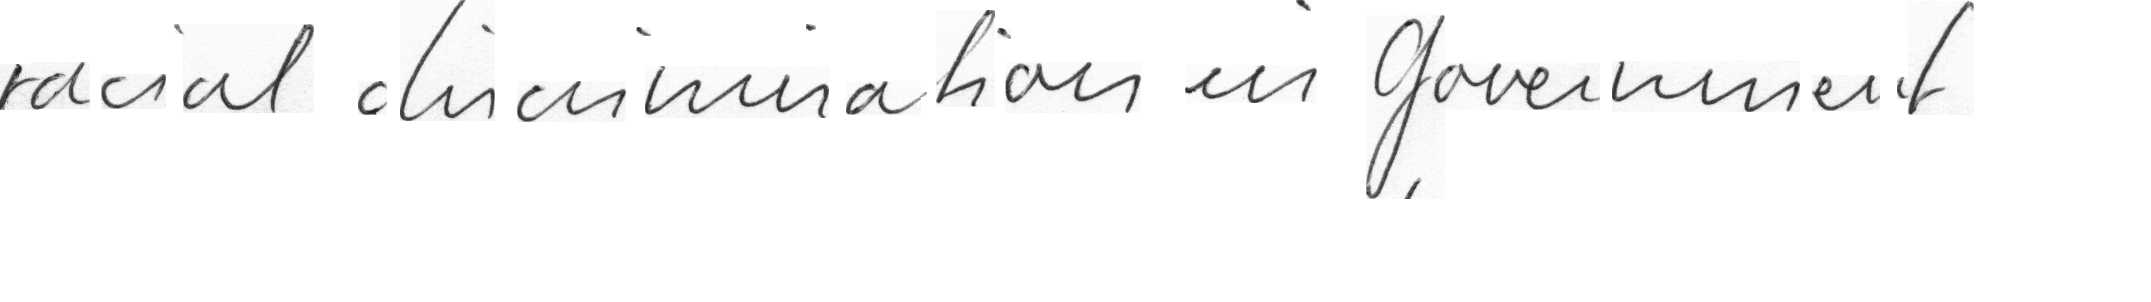 racial discrimination in Government